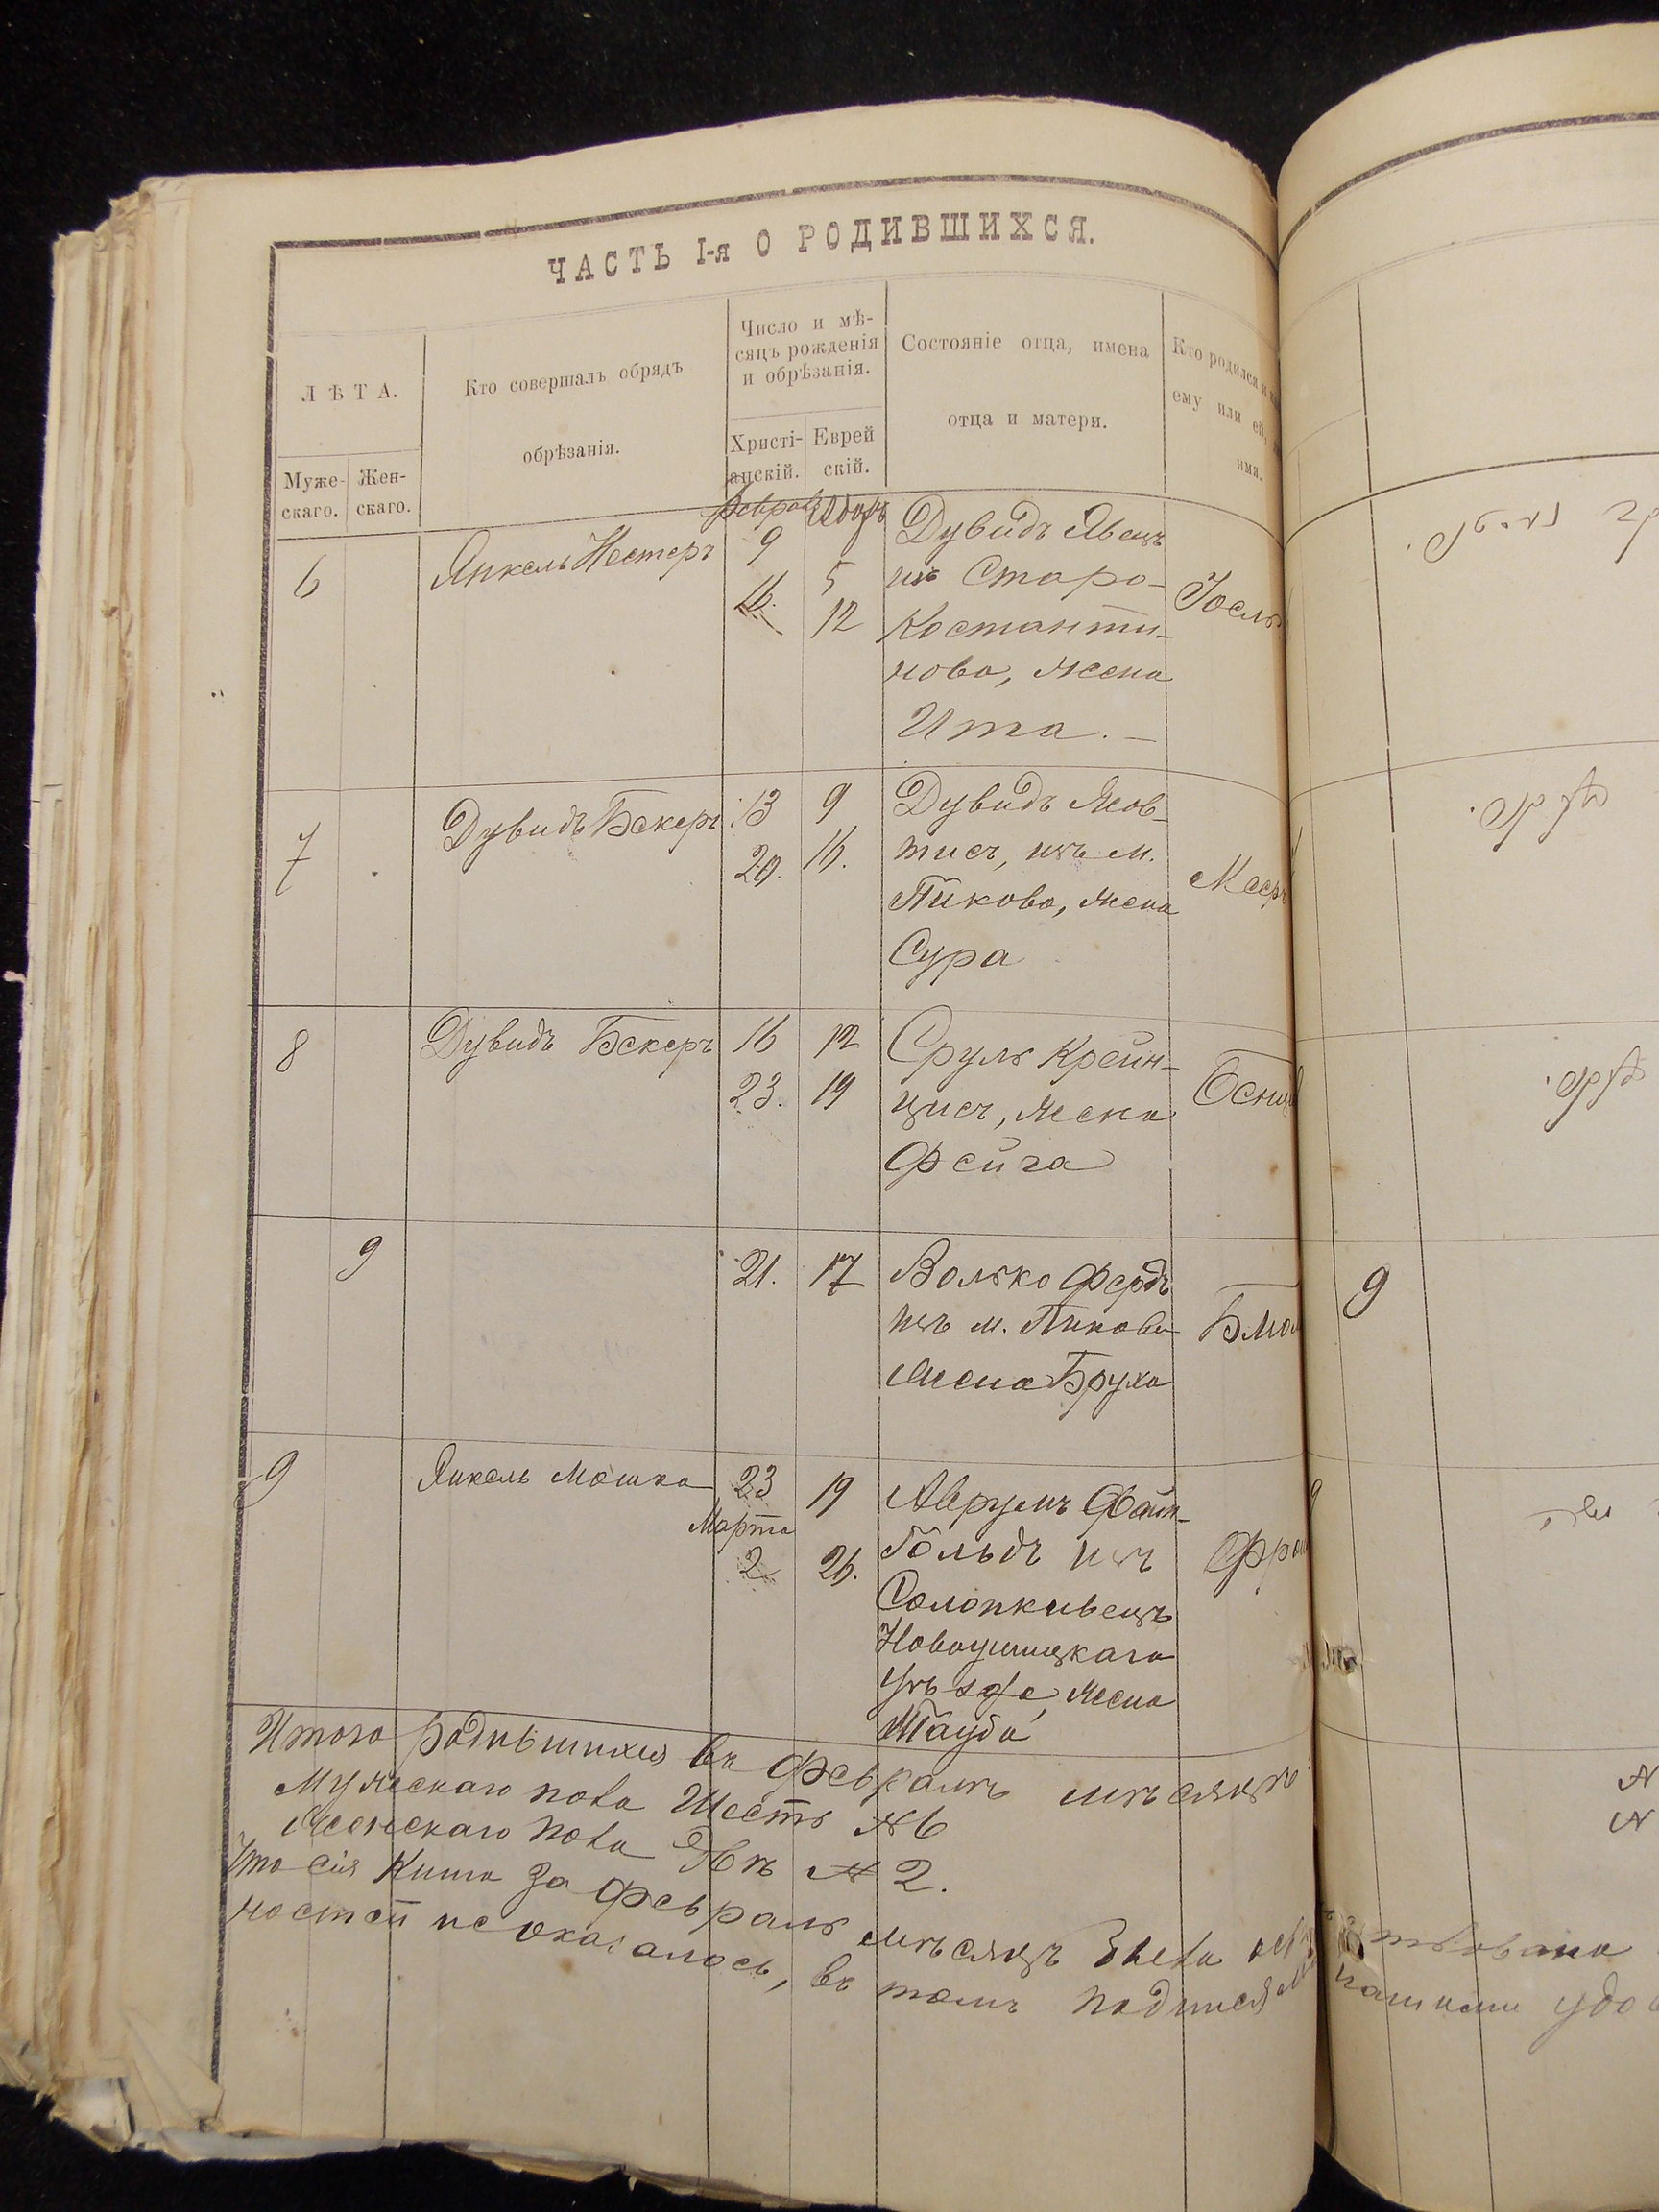 ЧАСТЬ I-я О РОДИВШИХСЯ.
ЛѢТА.
Муже-
скаго.
Жен-
скаго.
Кто совершалъ обрядъ
обрѣзанія.
Число и мѣ-
сяцъ рожденія
и обрѣзанія.
Христі-
анскій.
Еврей
скій.
Состояніе отца, имена
отца и матери.
Кто родился и
ему или ей,
имя.
6
Янкель Нестеръ
9
16.
5
12
Дувидъ
изъ Старо-
Костанти-
нова, жена
Ита. —
Іосль
7
Дувидъ Бекеръ
13
20.
9
16.
Дувидъ
тисъ, изъ м.
Пикова, жена
Сура
Меер
8
Дувидъ Бекеръ
16
23.
12
19
Сруль Крейн-
цисъ, жена
Фейга
9
21.
17
Волько Фердъ
изъ м. Пикова
жена Бруха
9
9
Янкель Мошко
23
Марта
2
19
26.
Аврумъ
Гольдъ изъ
Солопкивецъ
Новоушицкаго
уѣзда, жена
Тауба
Итого родившихся въ Февралѣ мѣсяцѣ
Мужескаго пола Шесть № 6
Женскаго пола Двѣ № 2.
Что сія Книга за Февраль мѣсяцъ была
ностей не оказалось, въ томъ подписям нашими